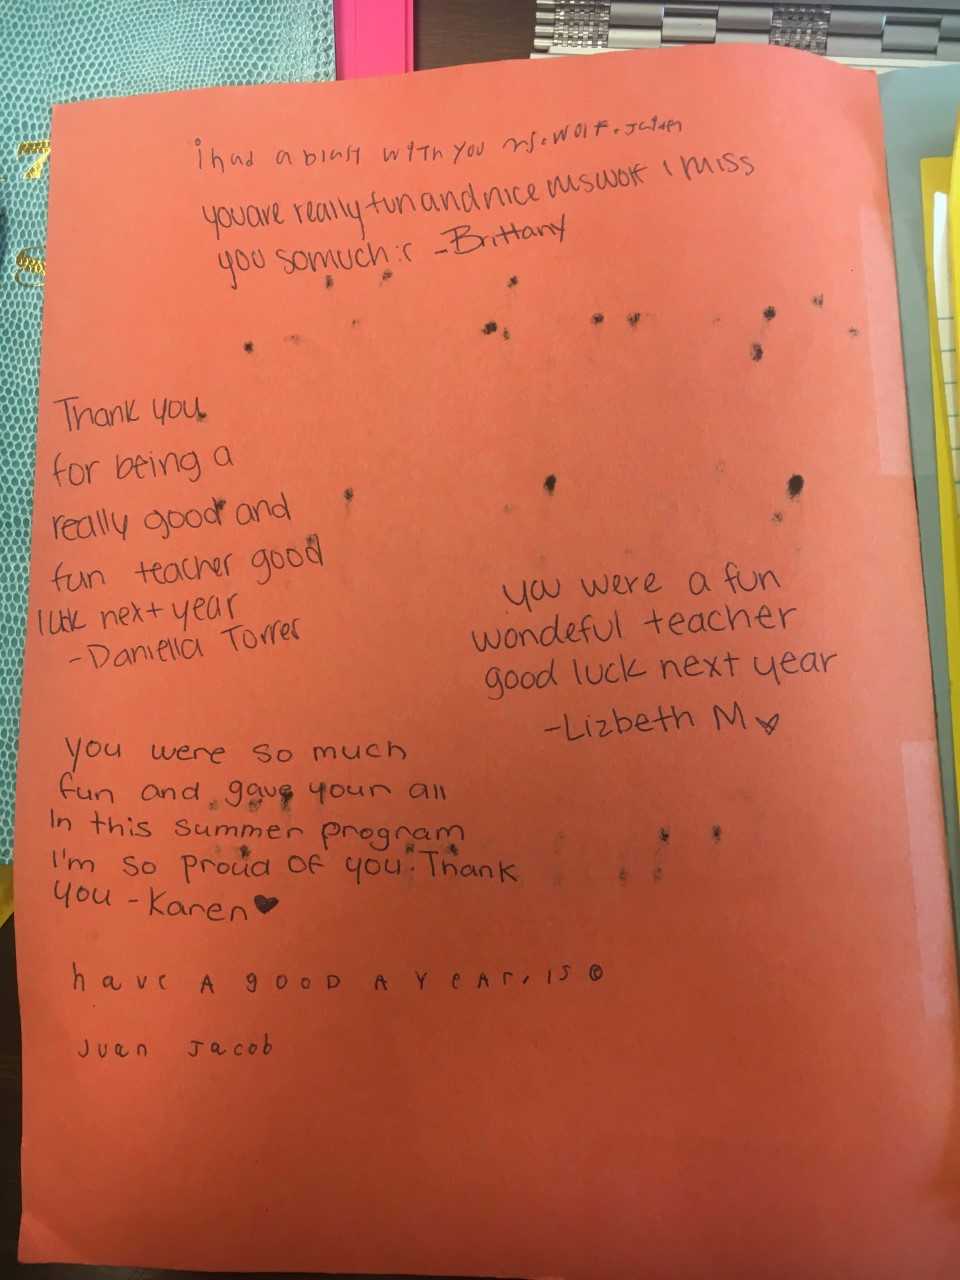 i had a blast with you Ms. Wolf.
you are really fun and nice Ms Wolf i miss
you so much :( -Brittany
Thank you
for being a
really good and
fun teacher good
luck next year
-Daniella Torres
you were a fun
wondeful teacher
good luck next year
-Lizbeth M
you were so much
fun and gave your all
In this summer program
I'm so proud of you. Thank
you -Karen
have A gooD A YeAr, is
Juan Jacob